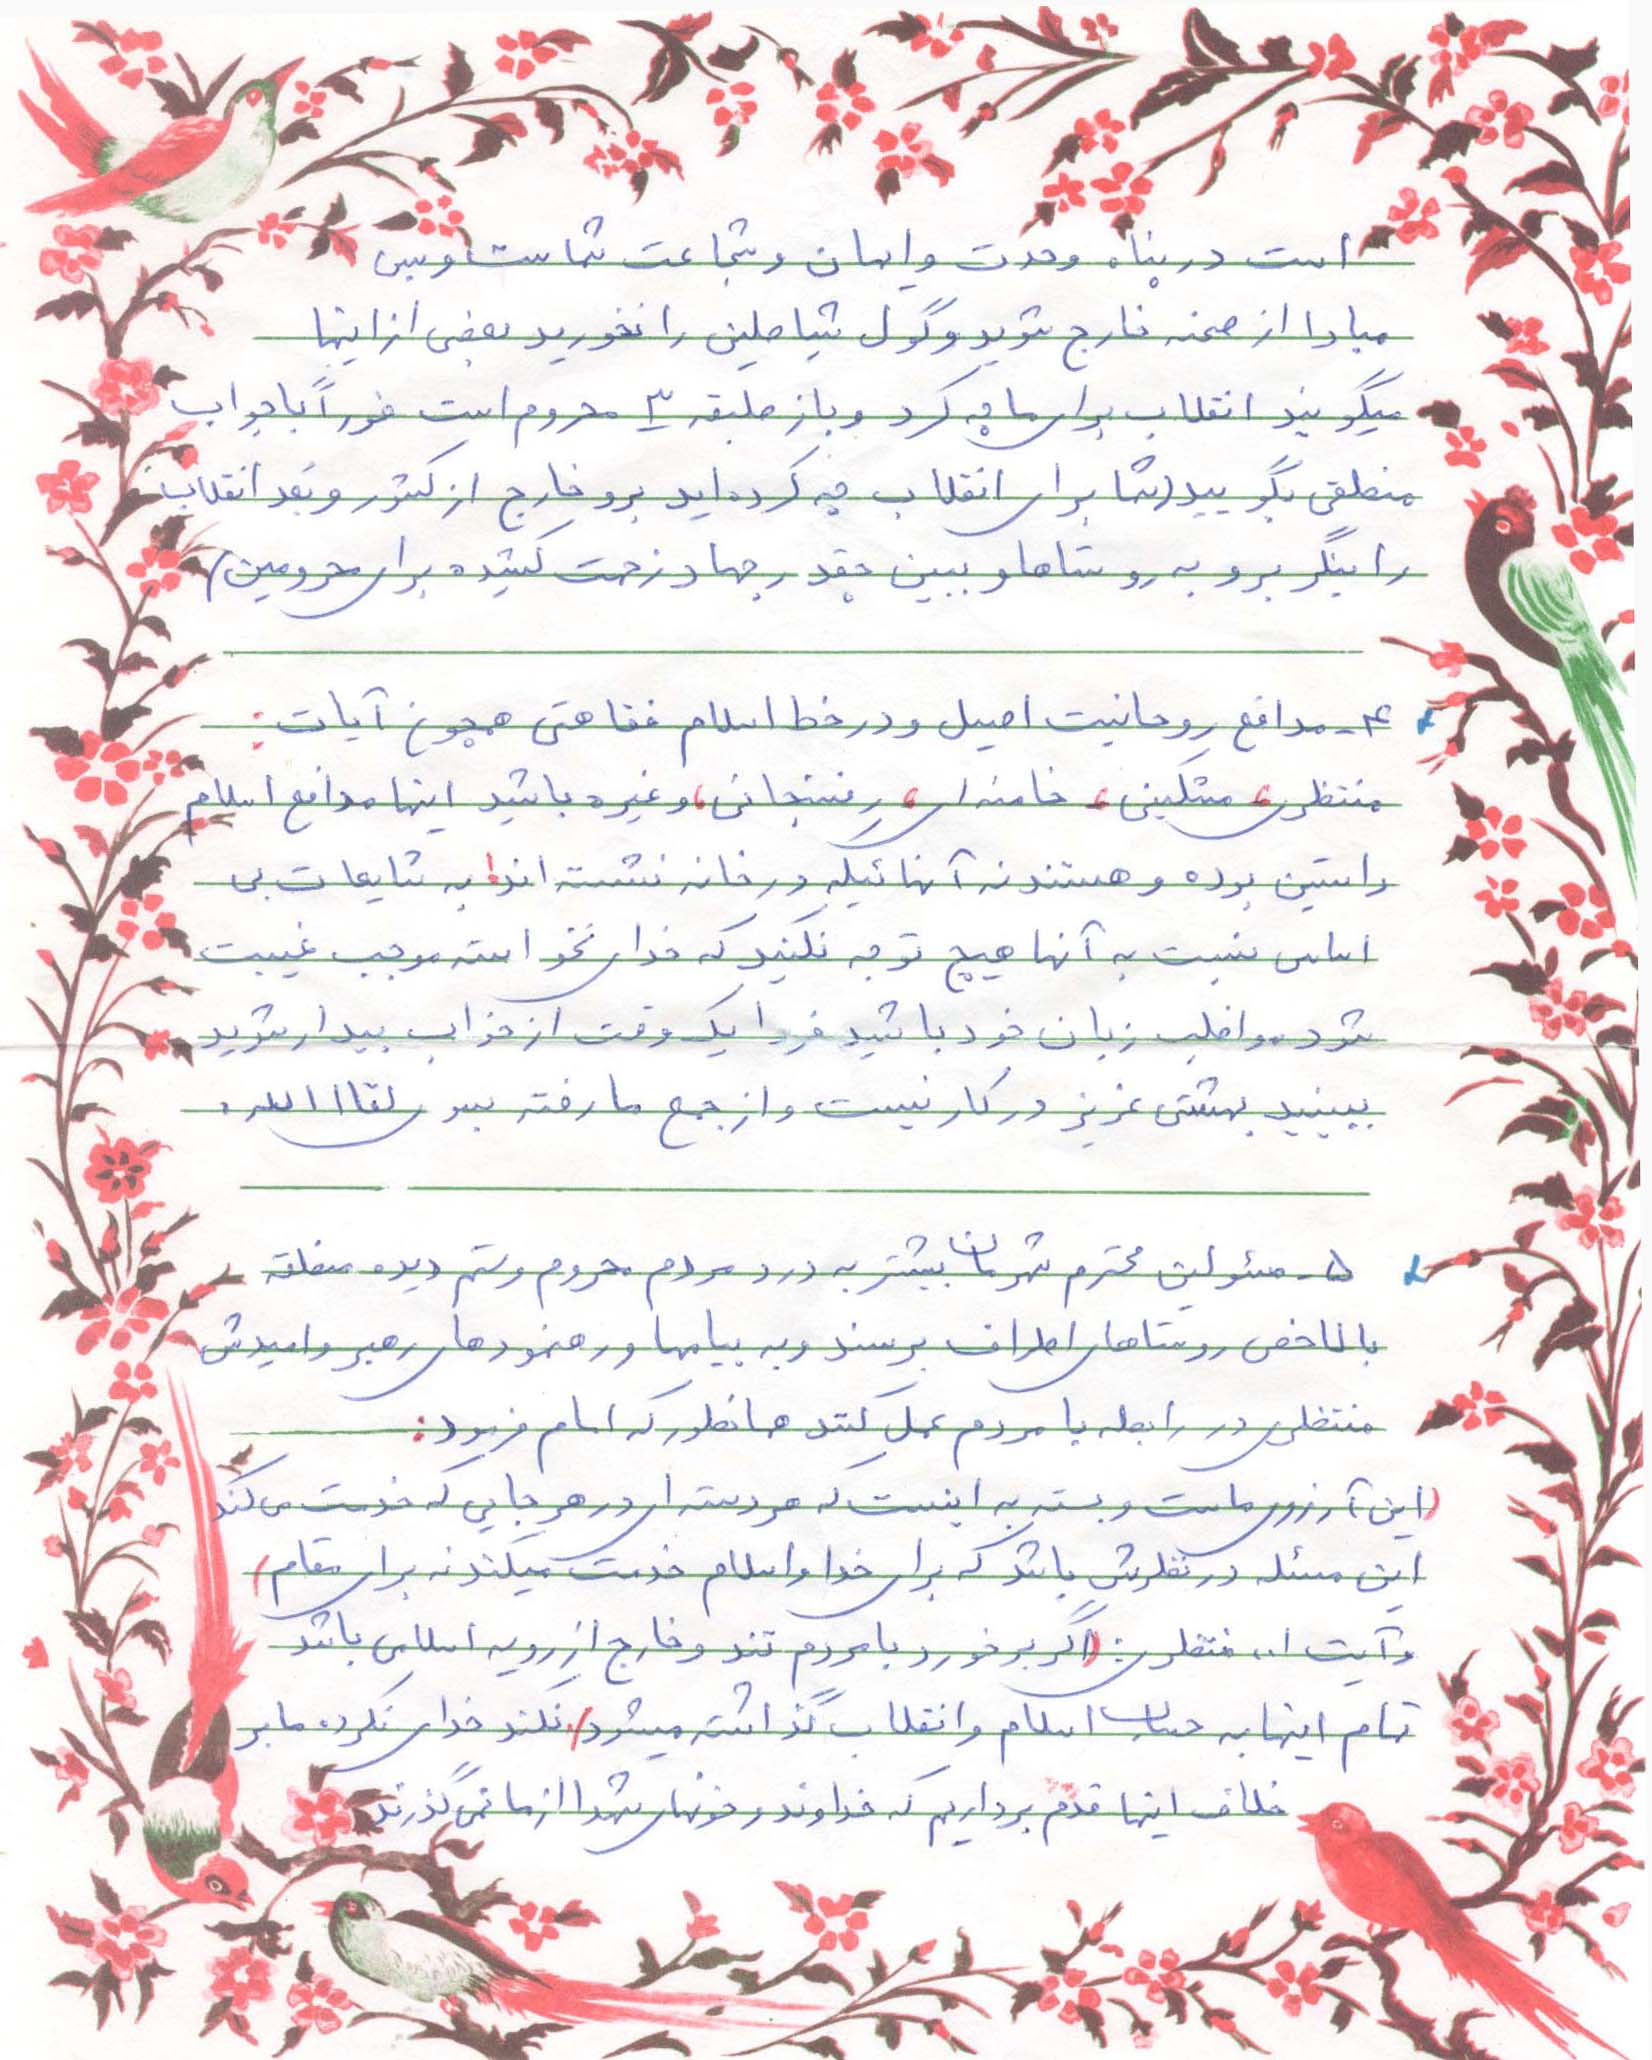 است در پناه وحدت و ایمان و شجاعت شماست و بس
مبادا از صحنه خارج شوید و گول شیاطین را نخورید بعضی از اینها
میگویند انقلاب برای ما چه کرد و باز طبقه ۳ محروم است فوراً با جواب
منطقی بگویید (شما برای انقلاب چه کرده‌اید برو خارج از کشور و بُعد انقلاب
را بنگر برو به روستاها و ببین چقدر جهاد زحمت کشیده برای محرومین)
۴- مدافع روحانیت اصیل و در خط اسلام فقاهتی همچون آیات:
منتظری، مشکینی، خامنه‌ای، رفسنجانی، و غیره باشید اینها مدافع اسلام
راستین بوده و هستند نه آنهائیکه در خانه نشسته‌اند! به شایعات بی
اساس نسبت به آنها هیچ توجه نکنید که خدای نخواسته موجب غیبت
شود مواظب زبان خود باشید فردا یک وقت از خواب بیدار شوید
ببینید بهشتی عزیز در کار نیست و از جمع ما رفته بسوی لقاا الله.
۵- مسئولین محترم شهرمان بیشتر به درد مردم محروم و ستم دیده منطقه
بالاخص روستاهای اطراف برسند و به پیامها و رهنمودهای رهبر و امیدش
منتظری در رابطه با مردم عمل کنند همانطور که امام فرمود:
(این آرزوی ماست و بسته به اینست که هر دسته‌ای در هر جایی که خدمت می‌کند
این مسئله در نظرش باشد که برای خدا و اسلام خدمت میکند نه برای مقام)
و آیت ا.. منتظری: (اگر برخورد با مردم تند و خارج از رویه اسلامی باشد
تمام اینها به حساب اسلام و انقلاب گذاشته میشود) نکند خدای نکرده ما بر
خلاف اینها قدم برداریم که خداوند و خونهای شهدا از ما نمی‌گذرند